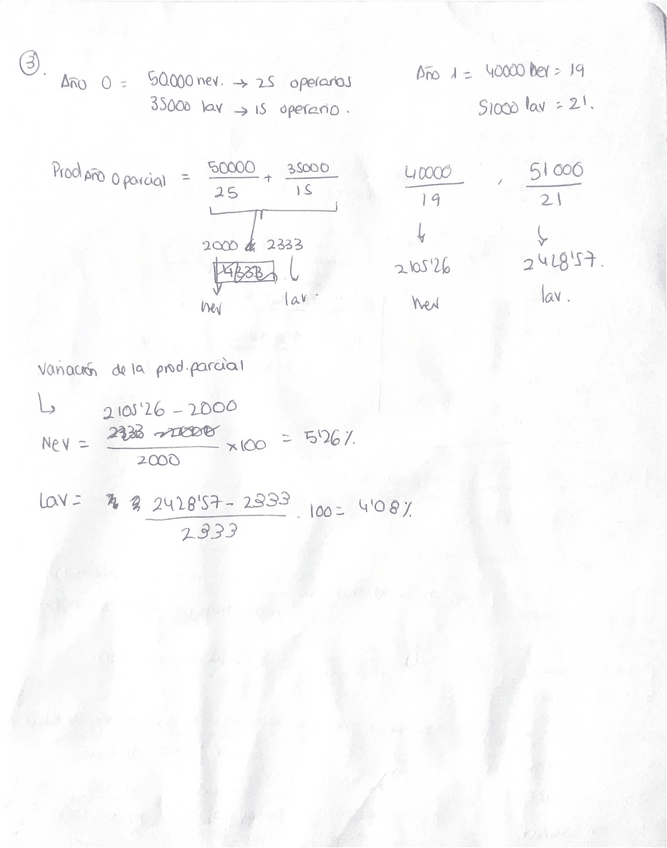 3.
Año 0 = 50.000 nev. → 25 operarios
35000 lav → 15 operario.
Año 1 = 40000 nev = 19
51000 lav = 21.
Prod Año 0 parcial = 50000/25 + 35000/15
2000 2333
nev lav.
40000/19 , 51000/21
↓ ↓
2105'26 2428'57.
nev lav.
Variación de la prod. parcial
↳ 2105'26 - 2000
Nev = 2000 x100 = 5'26%
Lav = 2428'57 - 2333 / 2333 . 100 = 4'08%